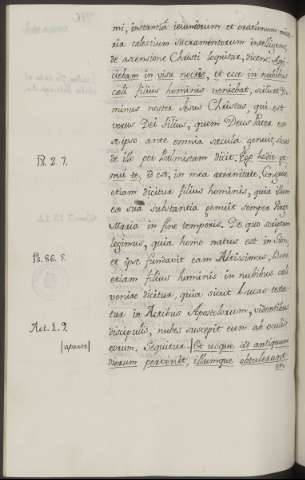 mi, instantia ieiuniorum et orationum mite-
ria celestium Sacramentorum intelligens,
de ascensione Christi loquitur, dicens: Aspi-
ciebam in visu noctis, et ecce in nubibus
celi filius hominis veniebat, scilicet Do-
minus noster Jhesus Christus, qui est
verus Dei filius, quem Deus Pater ex
se ipso ante omnia secula genuit, sicut
Ps. 2. 7.
de illo per Psalmistam dicit: Ego hodie ge-
nui te, id est, in mea aeternitate. Congrue
etiam dicitur filius hominis, quia illum
ex sua substantia genuit semper Virgo
Maria in fine temporis. De quo scriptum
legimus, quia homo natus est in Sion,
Ps. 86. 5.
et ipse fundavit eam Altissimus. Bene
etiam filius hominis in nubibus celi
venire dicitur, quia sicut Lucas testa-
tur in Actibus Apostolorum, videntibus
Act. 1. 9.
discipulis, nubes suscepit eum ab oculis
|aparte|
eorum. Sequitur. | Et usque ad antiquum
dierum pervenit, illumque obtulerunt
in